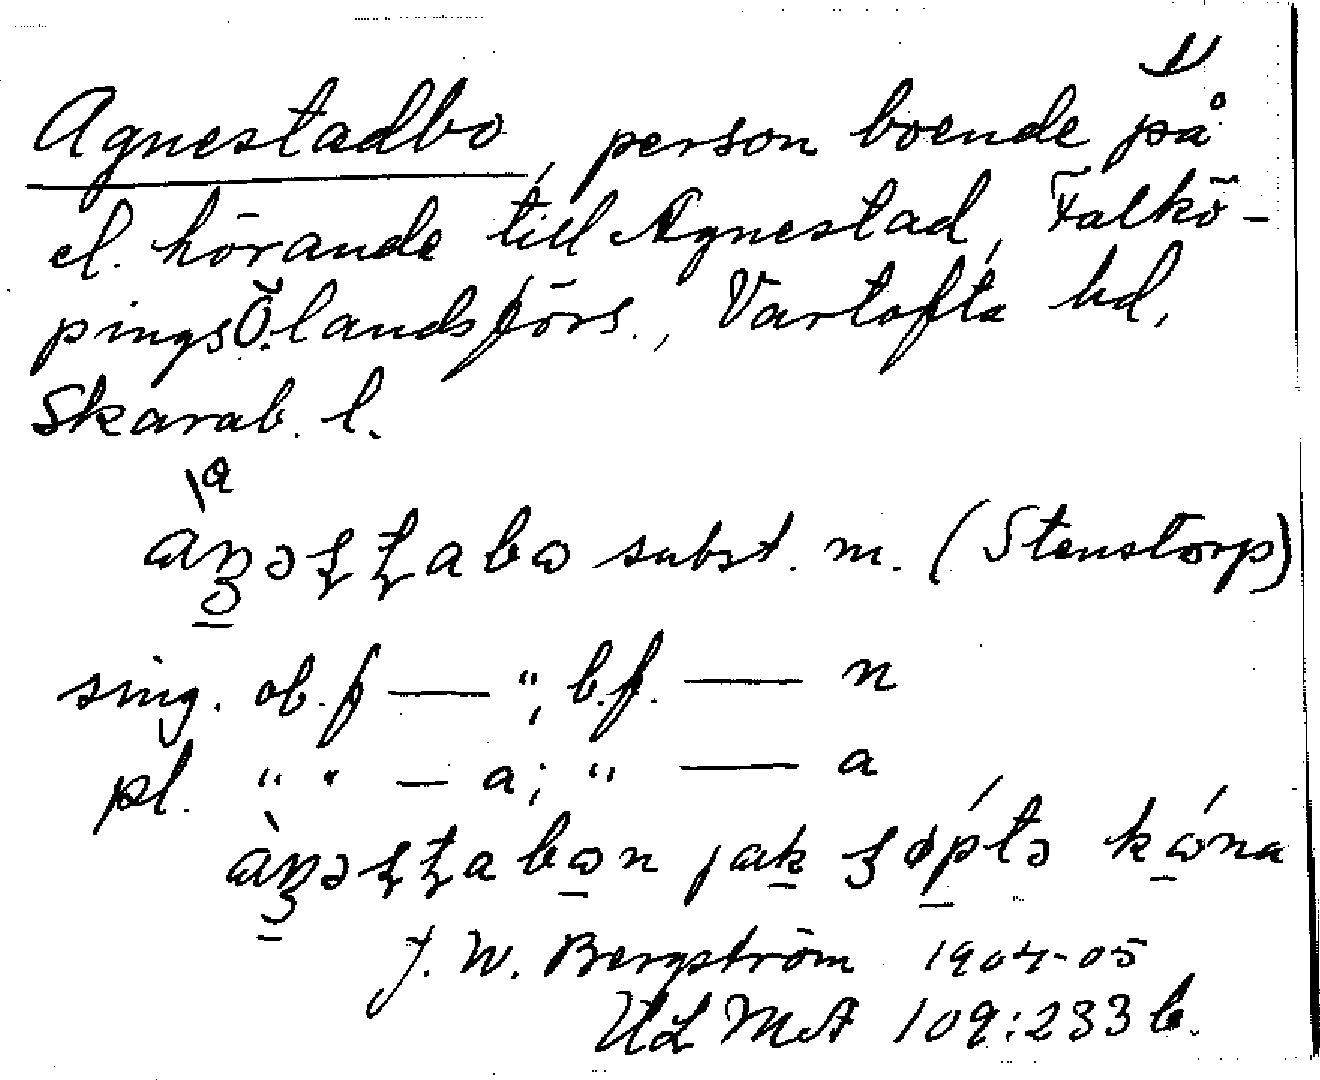 Agnestadbo, person boende på
el. hörande till Agnestad, Falkö-
pings Ö. landsförs., Vartofta hd,
Skarab. l.
subst. m. (Stenstorp)
sing. ob. f — "; b.f. — n
pl. " " — a; " — a
J. W. Bergström 1904-05
ULMA 109:233 b.